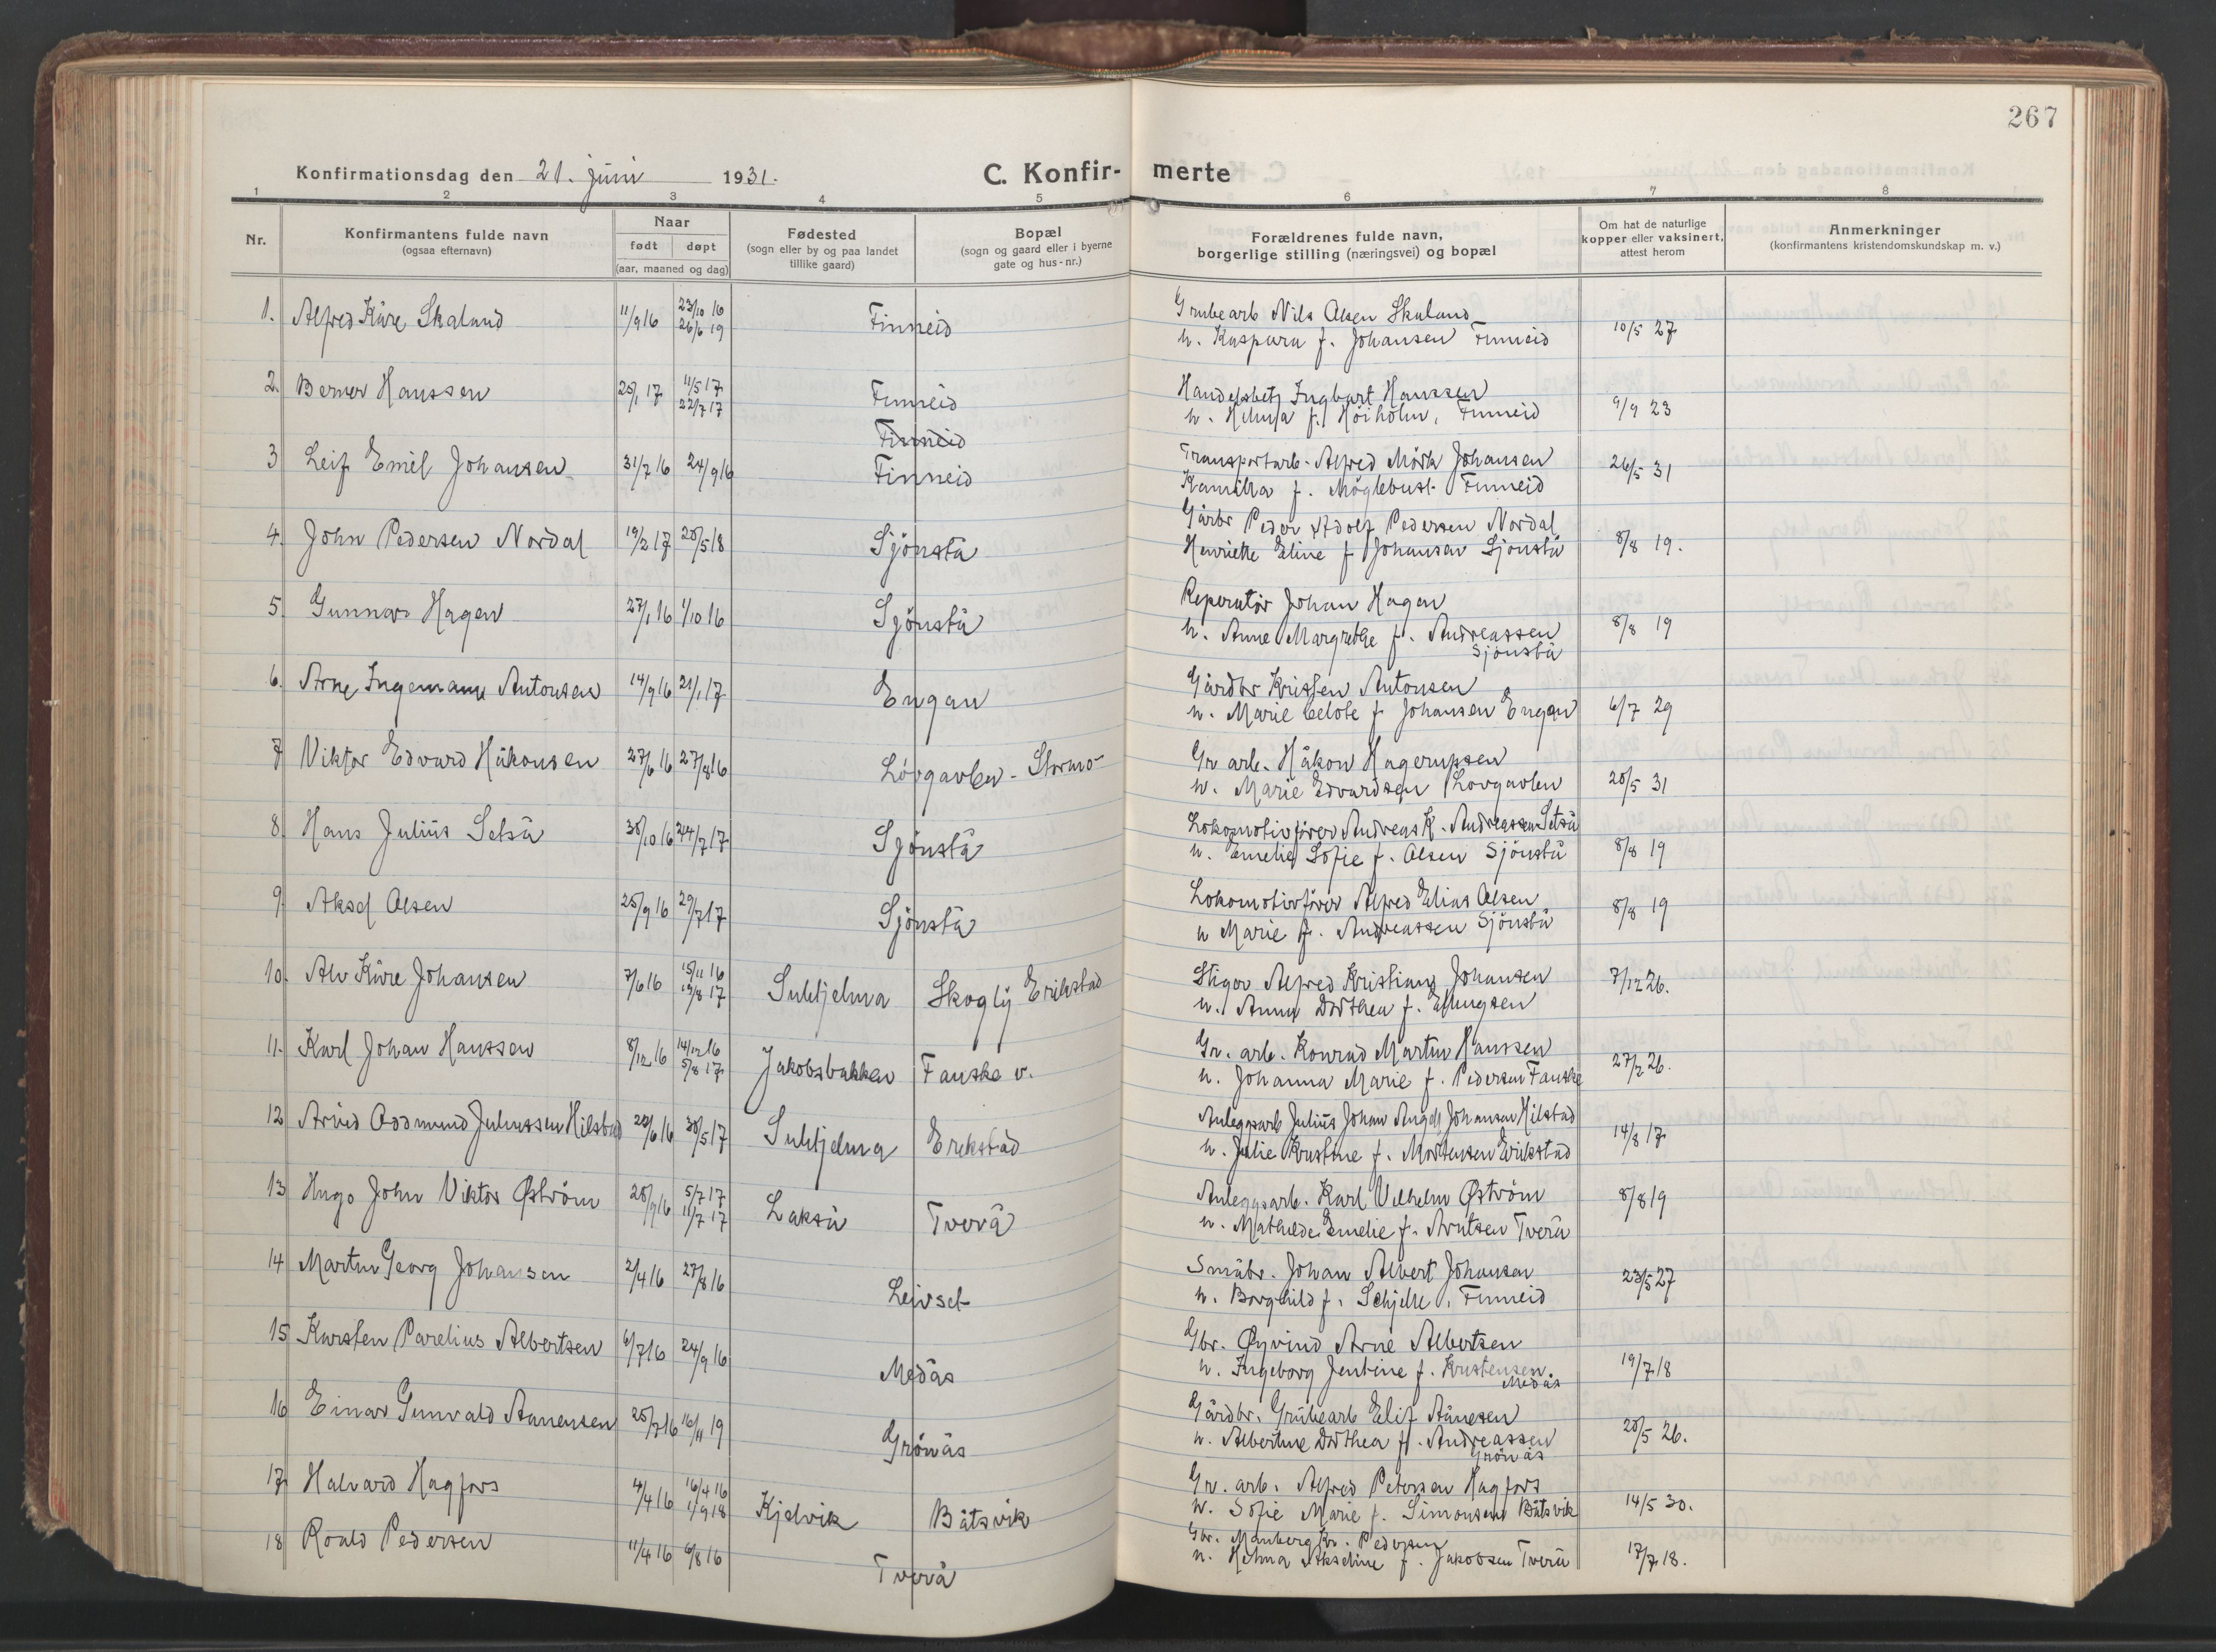 267
Konfirmationsdag den 21. juni 1931.
C. Konfir- merte
1 2 3 4 5 6 7 8
Nr.
Konfirmantens fulde navn
(ogsaa efternavn)
Naar
født døpt
(aar, maaned og dag)
Fødested
(sogn eller by og paa landet
tillike gaard)
Bopæl
(sogn og gaard eller i byerne
gate og hus-nr.)
Forældrenes fulde navn,
borgerlige stilling (næringsvei) og bopæl
Om hat de naturlige
kopper eller vaksinert,
attest herom
Anmerkninger
(konfirmantens kristendomskundskap m. v.)
1. Alfred Kåre Skaland 11/9 16 23/10 16 26/6 19 Finneid
Grubearb Nils Olsen Skaland
h. Kaspara f. Johansen Finneid 10/5 27
2. Berner Hanssen 25/1 17 11/5 17 22/7 17 Finneid
Handelsbetj Ingbart Hanssen
h. Helmja f. Höiholm, Finneid 9/9 23
Finneid
3 Leif Emil Johansen 31/7 16 24/9 16 Finneid
Transportarb. Alfred Mörk Johansen
Kamilla f. Möglebust Finneid 26/5 31
4. John Pedersen Nordal 19/2 17 20/5 18 Sjönstå
Gårbr Peder Adolf Pedersen Nordal
Henriette Eline f Johansen Sjönstå 8/8 19.
5. Gunnar Hagen 27/1 16 1/10 16 Sjönstå
Reperatör Johan Hagen
h. Anne Margrethe f. Andreassen
Sjönstå 8/8 19
6. Arne Ingemann Antonsen 14/9 16 21/1 17 Engan
Gårdbr Kristen Antonsen
h. Marie Celote f Johansen Engan 6/7 29
7 Viktor Edvard Håkonsen 27/6 16 27/8 16 Lövgavlen - Stormo
Gr arb. Håkon Hagerupsen
h. Marie Edvardsen Lövgavlen 20/5 31
8. Hans Julius Setså 30/10 16 24/7 17 Sjönstå
Lokomotivförer Andreas K. Andreassen Setså
h. Emelie Sofie f. Olsen Sjönstå 8/8 19
9. Aksel Olsen 25/9 16 29/7 17 Sjönstå
Lokomotivförer Alfred Elias Olsen
h Marie f. Andreassen Sjönstå 8/8 19
10. Alv Kåre Johansen 7/6 16 15/11 16 19/8 17 Sulitjelma Skogly Erikstad
Stiger Alfred Kristian Johansen
h. Anna Dorthea f. Ellingsen 7/12 26.
11. Karl Johan Hanssen 8/12 16 14/12 16 5/8 17 Jakobsbakken Fauske v.
Gr. arb. Konrad Martin Hanssen
h. Johanna Marie f. Pedersen Fauske 27/2 26.
12 Arvid Oddmund Juliussen Hilstad 20/6 16 30/5 17 Sulitjelma Erikstad
Anleggsarb Julius Johan Angel Johansen Hilstad
h. Julie Kristine f. Mortensen Erikstad 14/8 17.
13 Hugo John Viktor Øström 28/9 16 5/7 17 11/7 17 Lakså Tverå
Anleggsarb. Karl Vilhelm Øström
h. Mathilde Emelie f. Arntsen Tverå 8/8 19
14 Martin Georg Johansen 2/4 16 27/8 16 Leivset
Småbr. Johan Albert Johansen
h. Borghild f. Schjelle. Finneid 23/5 27
15 Karsten Parelius Albertsen 6/7 16 24/9 16 Medås
Gbr. Øyvind Arne Albertsen
h. Ingeborg Jentine f. Kristensen
Medås 19/7 18
16 Einar Gunvald Aanensen 25/7 16 16/11 19 Grönås
Gårdbr. Grubearb Elif Aanesen
h. Albertine Dorthea f. Andreassen
Grönås 20/5 26.
17. Halvard Hagfors 4/4 16 16/4 16 1/9 18 Kjelvik Båtsvik
Gr. arb. Alfred Petersen Hagfors
h. Sofie Marie f. Simonsen Båtsvik 14/5 30.
18 Roald Pedersen 11/4 16 6/8 16 Tverå
Gbr. Manberg Kr. Pedersen
h. Helma Akseline f. Jakobsen Tverå 17/7 18.